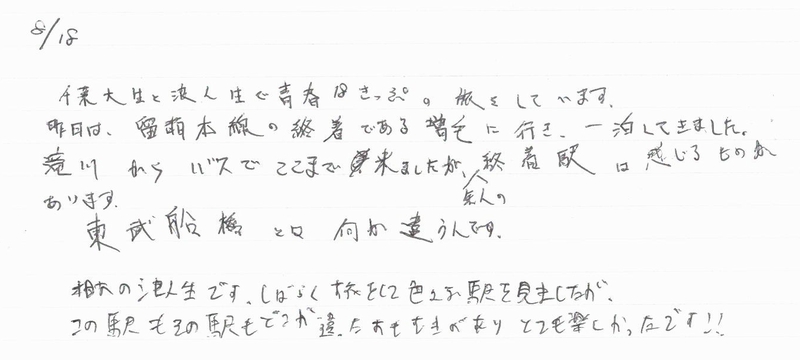 8/18
千葉大生と浪人生で青春18きっぷの旅をしています。
昨日は、留萌本線の終着である増毛に行き、一泊してきました。
滝川からバスでここまで来ましたが、無人の終着駅は感じるものが
あります。
東武船橋とは何か違うんです。
相方の浪人生です。しばらく旅をして色々な駅を見ましたが、
この駅もその駅もどこか違ったおもむきがありとても楽しかったです!!